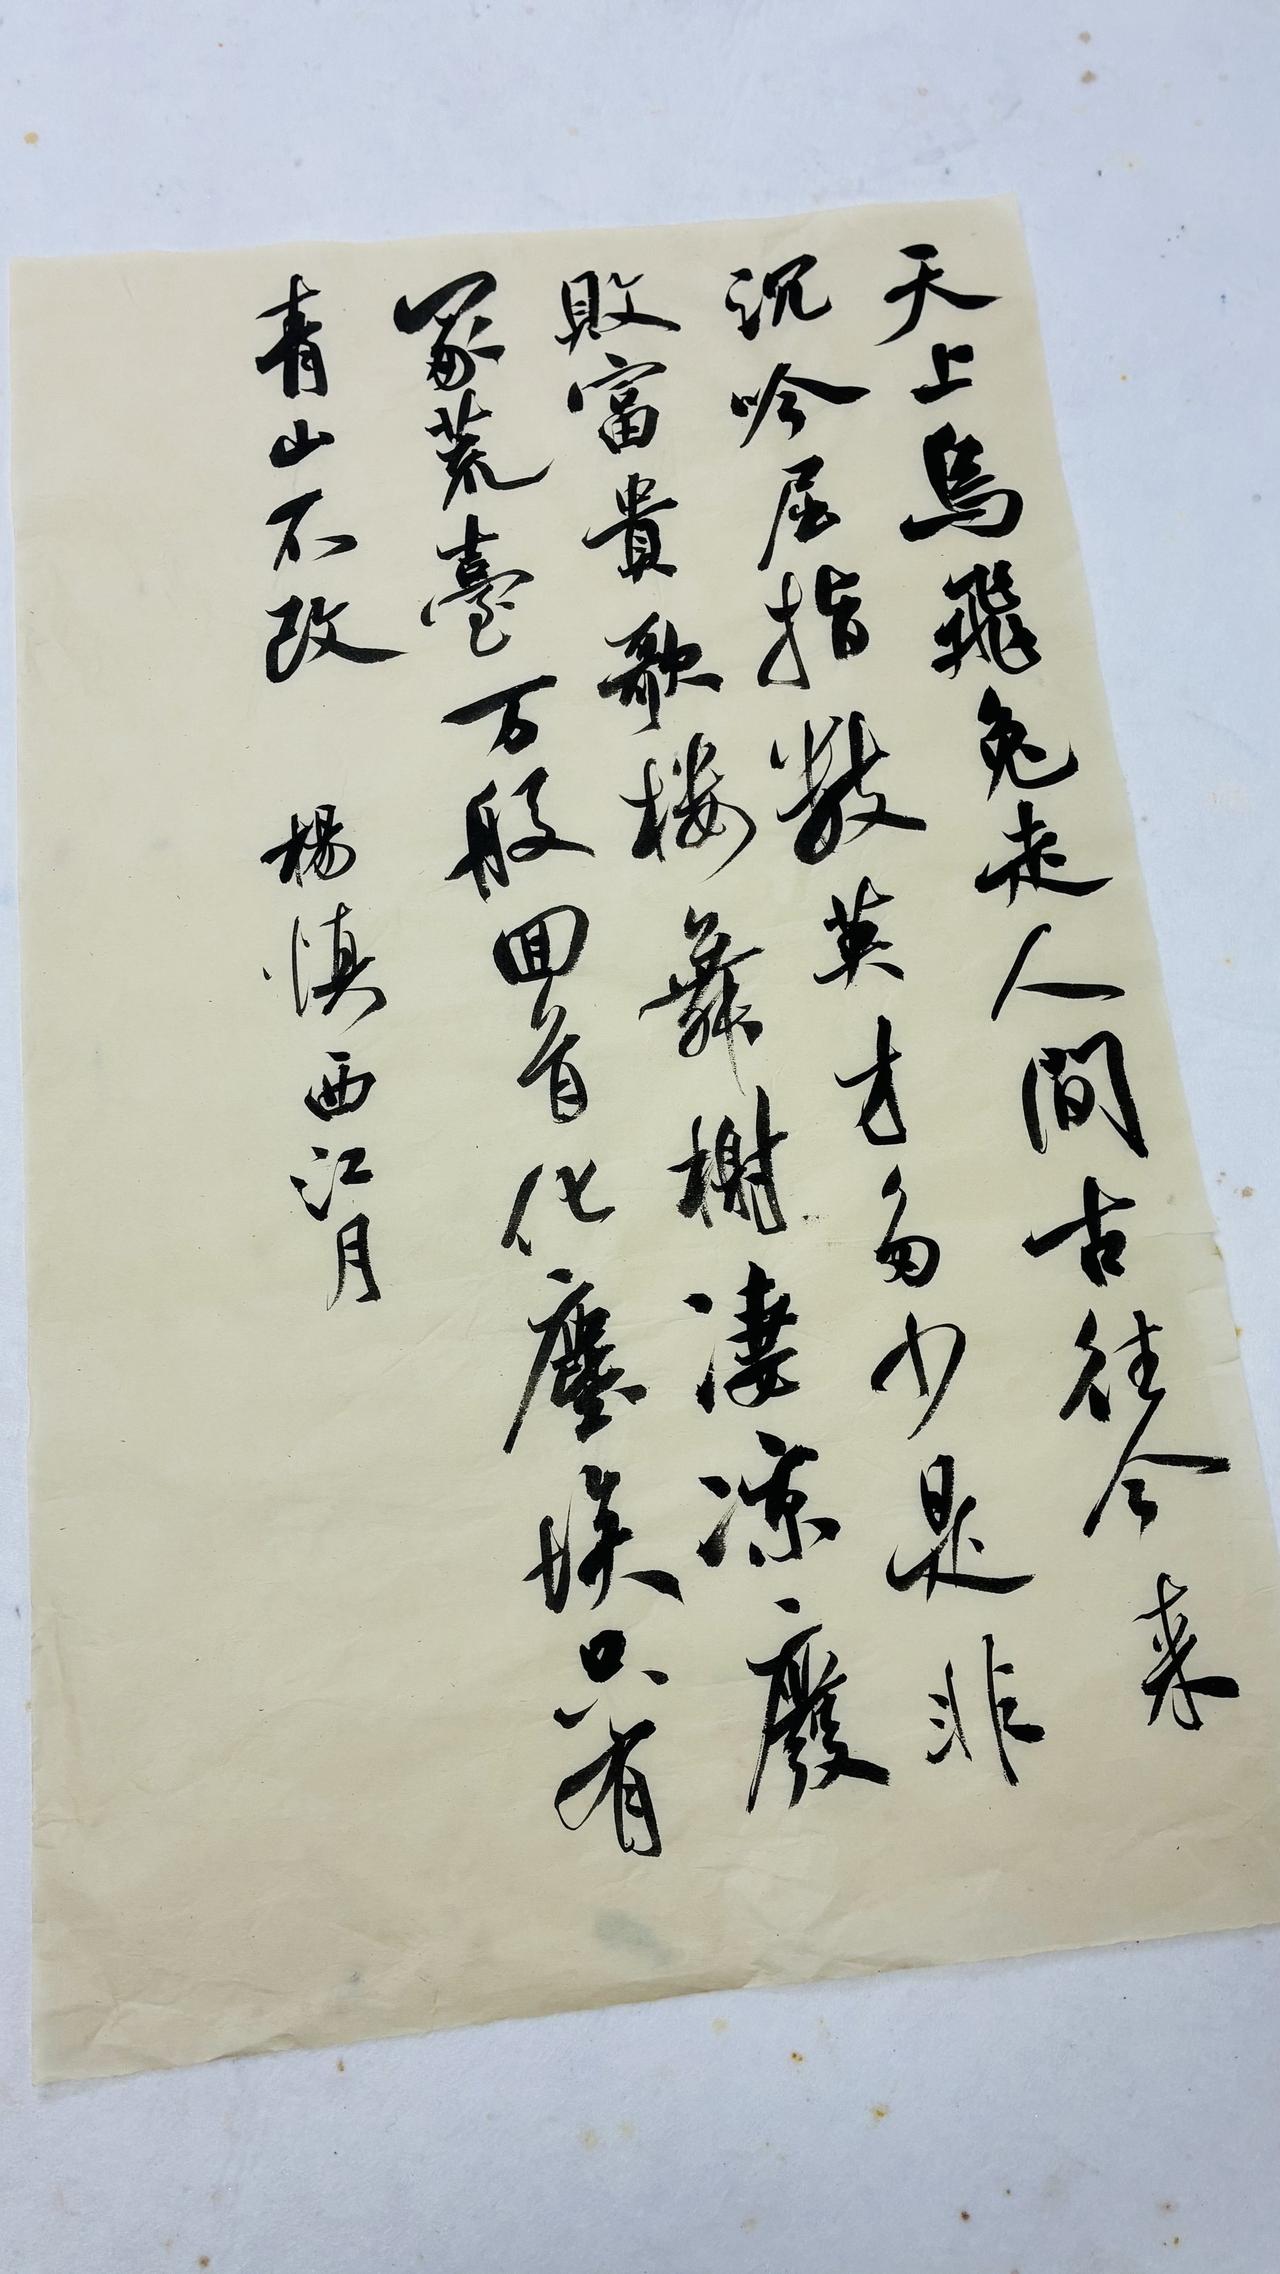 天上烏飛兔走人間古往今来
沉吟屈指数英才多少是非
敗富貴歌楼舞榭凄凉廢
冢荒臺万般回首化塵埃只有
青山不改　楊慎西江月